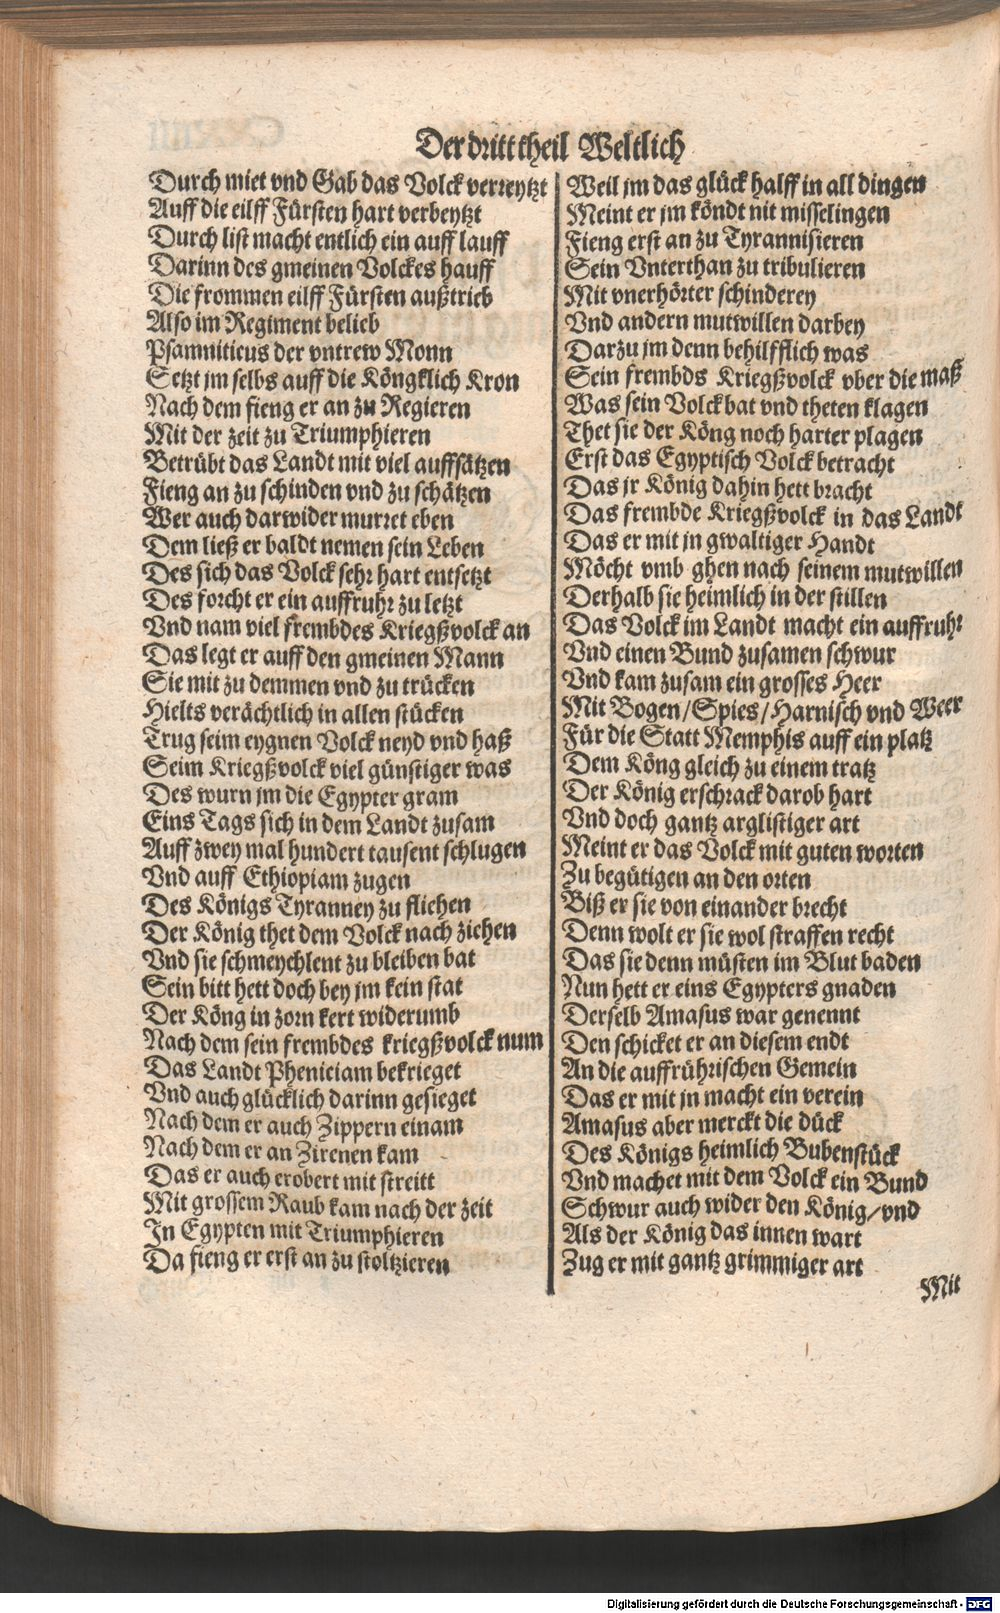 Der dritt theil Weltlich
Durch miet vnd Gab das Volck verreytzt
Auff die eilff Fürsten hart verbeytzt
Durch list macht entlich ein auff lauff
Darinn des gmeinen Volckes hauff
Die frommen eilff Fürsten außtrieb
Also im Regiment belieb
Psamniticus der vntrew Monn
Setzt jm selbs auff die Köngklich Kron
Nach dem fieng er an zu Regieren
Mit der zeit zu Triumphieren
Betrübt das Landt mit viel auffsätzen
Fieng an zu schinden vnd zu schätzen
Wer auch darwider murret eben
Dem ließ er baldt nemen sein Leben
Des sich das Volck sehr hart entsetzt
Des forcht er ein auffruhr zu letzt
Vnd nam viel frembdes Kriegßvolck an
Das legt er auff den gmeinen Mann
Sie mit zu demmen vnd zu trücken
Hielts verächtlich in allen stücken
Trug seim eygnen Volck neyd vnd haß
Seim Kriegßvolck viel günstiger was
Des wurn jm die Egypter gram
Eins Tags sich in dem Landt zusam
Auff zwey mal hundert tausent schlugen
Vnd auff Ethiopiam zugen
Des Königs Tyranney zu fliehen
Der König thet dem Volck nach ziehen
Vnd sie schmeychlent zu bleiben bat
Sein bitt hett doch bey jm kein stat
Der Köng in zorn kert widerumb
Nach dem sein frembdes kriegßvolck num
Das Landt Pheniciam bekrieget
Vnd auch glücklich darinn gesieget
Nach dem er auch Zippern einam
Nach dem er an Zirenen kam
Das er auch erobert mit streitt
Mit grossem Raub kam nach der zeit
In Egypten mit Triumphieren
Da fieng er erst an zu stoltzieren
Weil jm das glück halff in all dingen
Meint er jm köndt nit misselingen
Fieng erst an zu Tyrannisieren
Sein Vnterthan zu tribulieren
Mit vnerhörter schinderey
Vnd andern mutwillen darbey
Darzu jm denn behilfflich was
Sein frembds Kriegßvolck vber die maß
Was sein Volck bat vnd theten klagen
Thet sie der Köng noch harter plagen
Erst das Egyptisch Volck betracht
Das jr König dahin hett bracht
Das frembde Kriegßvolck in das Landt
Das er mit jn gwaltiger Handt
Möcht vmb ghen nach seinem mutwillen
Derhalb sie heimlich in der stillen
Das Volck im Landt macht ein auffruhr
Vnd einen Bund zusamen schwur
Vnd kam zusam ein grosses Heer
Mit Bogen/Spies/Harnisch vnd Weer
Für die Statt Memphis auff ein platz
Dem Köng gleich zu einem tratz
Der König erschrack darob hart
Vnd doch gantz arglistiger art
Meint er das Volck mit guten worten
Zu begütigen an den orten
Biß er sie von einander brecht
Denn wolt er sie wol straffen recht
Das sie denn müsten im Blut baden
Nun hett er eins Egypters gnaden
Derselb Amasus war genennt
Den schicket er an diesem endt
An die auffrührischen Gemein
Das er mit jn macht ein verein
Amasus aber merckt die dück
Des Königs heimlich Bubenstück
Vnd machet mit dem Volck ein Bund
Schwur auch wider den König/vnd
Als der König das innen wart
Zug er mit gantz grimmiger art
Mit
Digitalisierung gefördert durch die Deutsche Forschungsgemeinschaft - DFG